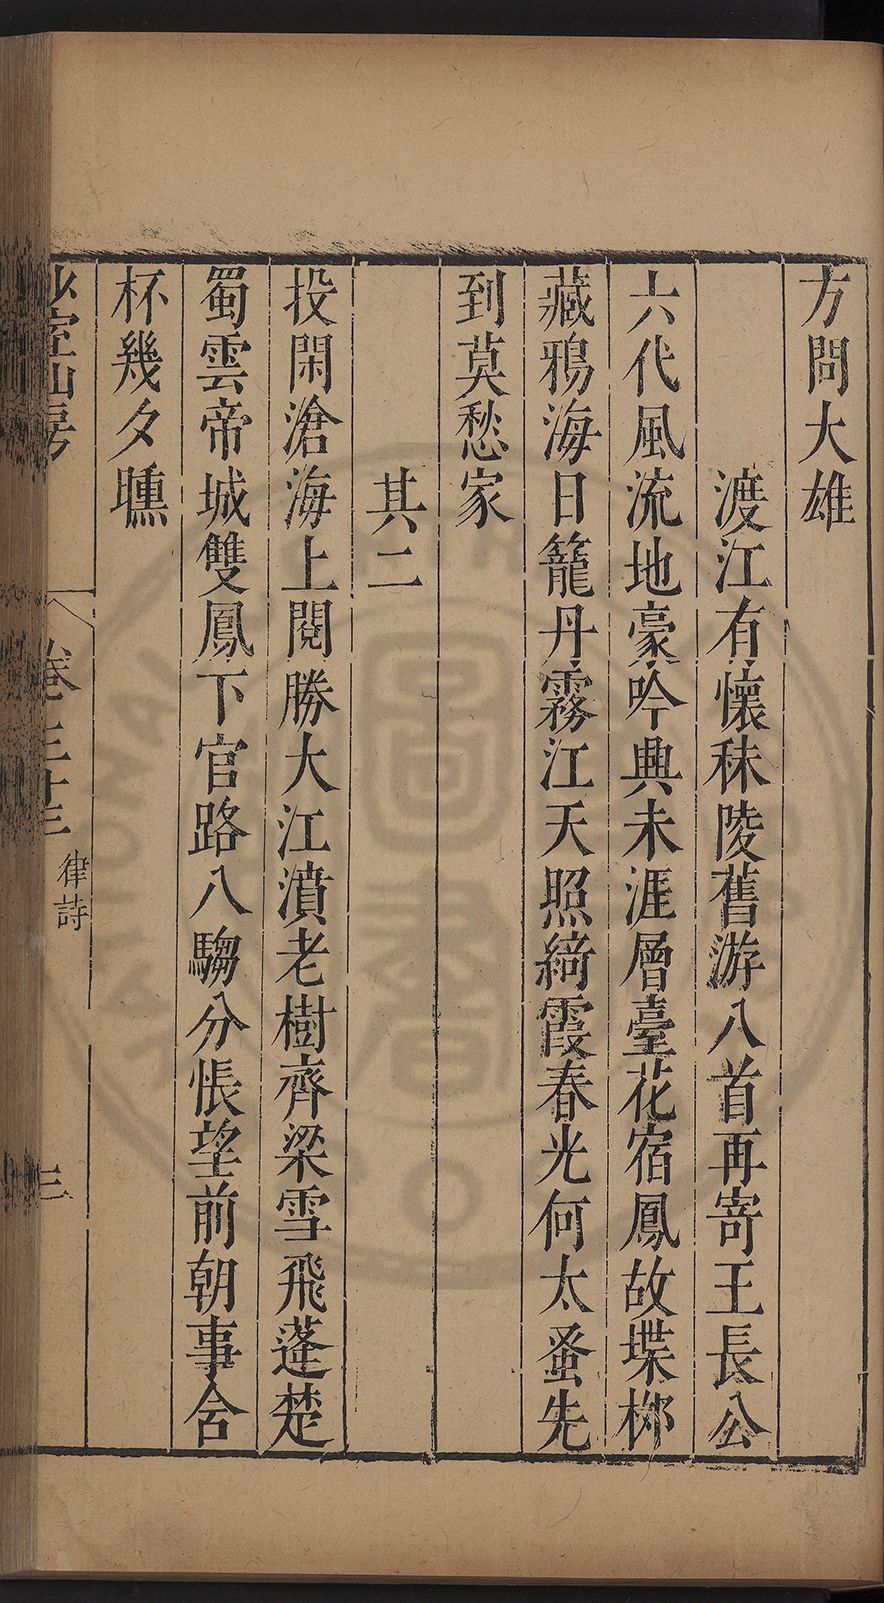 方問大雄
渡江有懷秣陵舊游八首再寄王長公
六代風流地豪吟興未涯層臺花宿鳳故堞桺
藏鴉海日籠丹霧江天照綺霞春光何太蚤先
到莫愁家
其二
投閑滄海上閱勝大江濆老樹齊梁雪飛蓬楚
蜀雲帝城雙鳳下官路八騶分悵望前朝事含
杯幾夕曛
少室山房
卷三十三
律詩
三